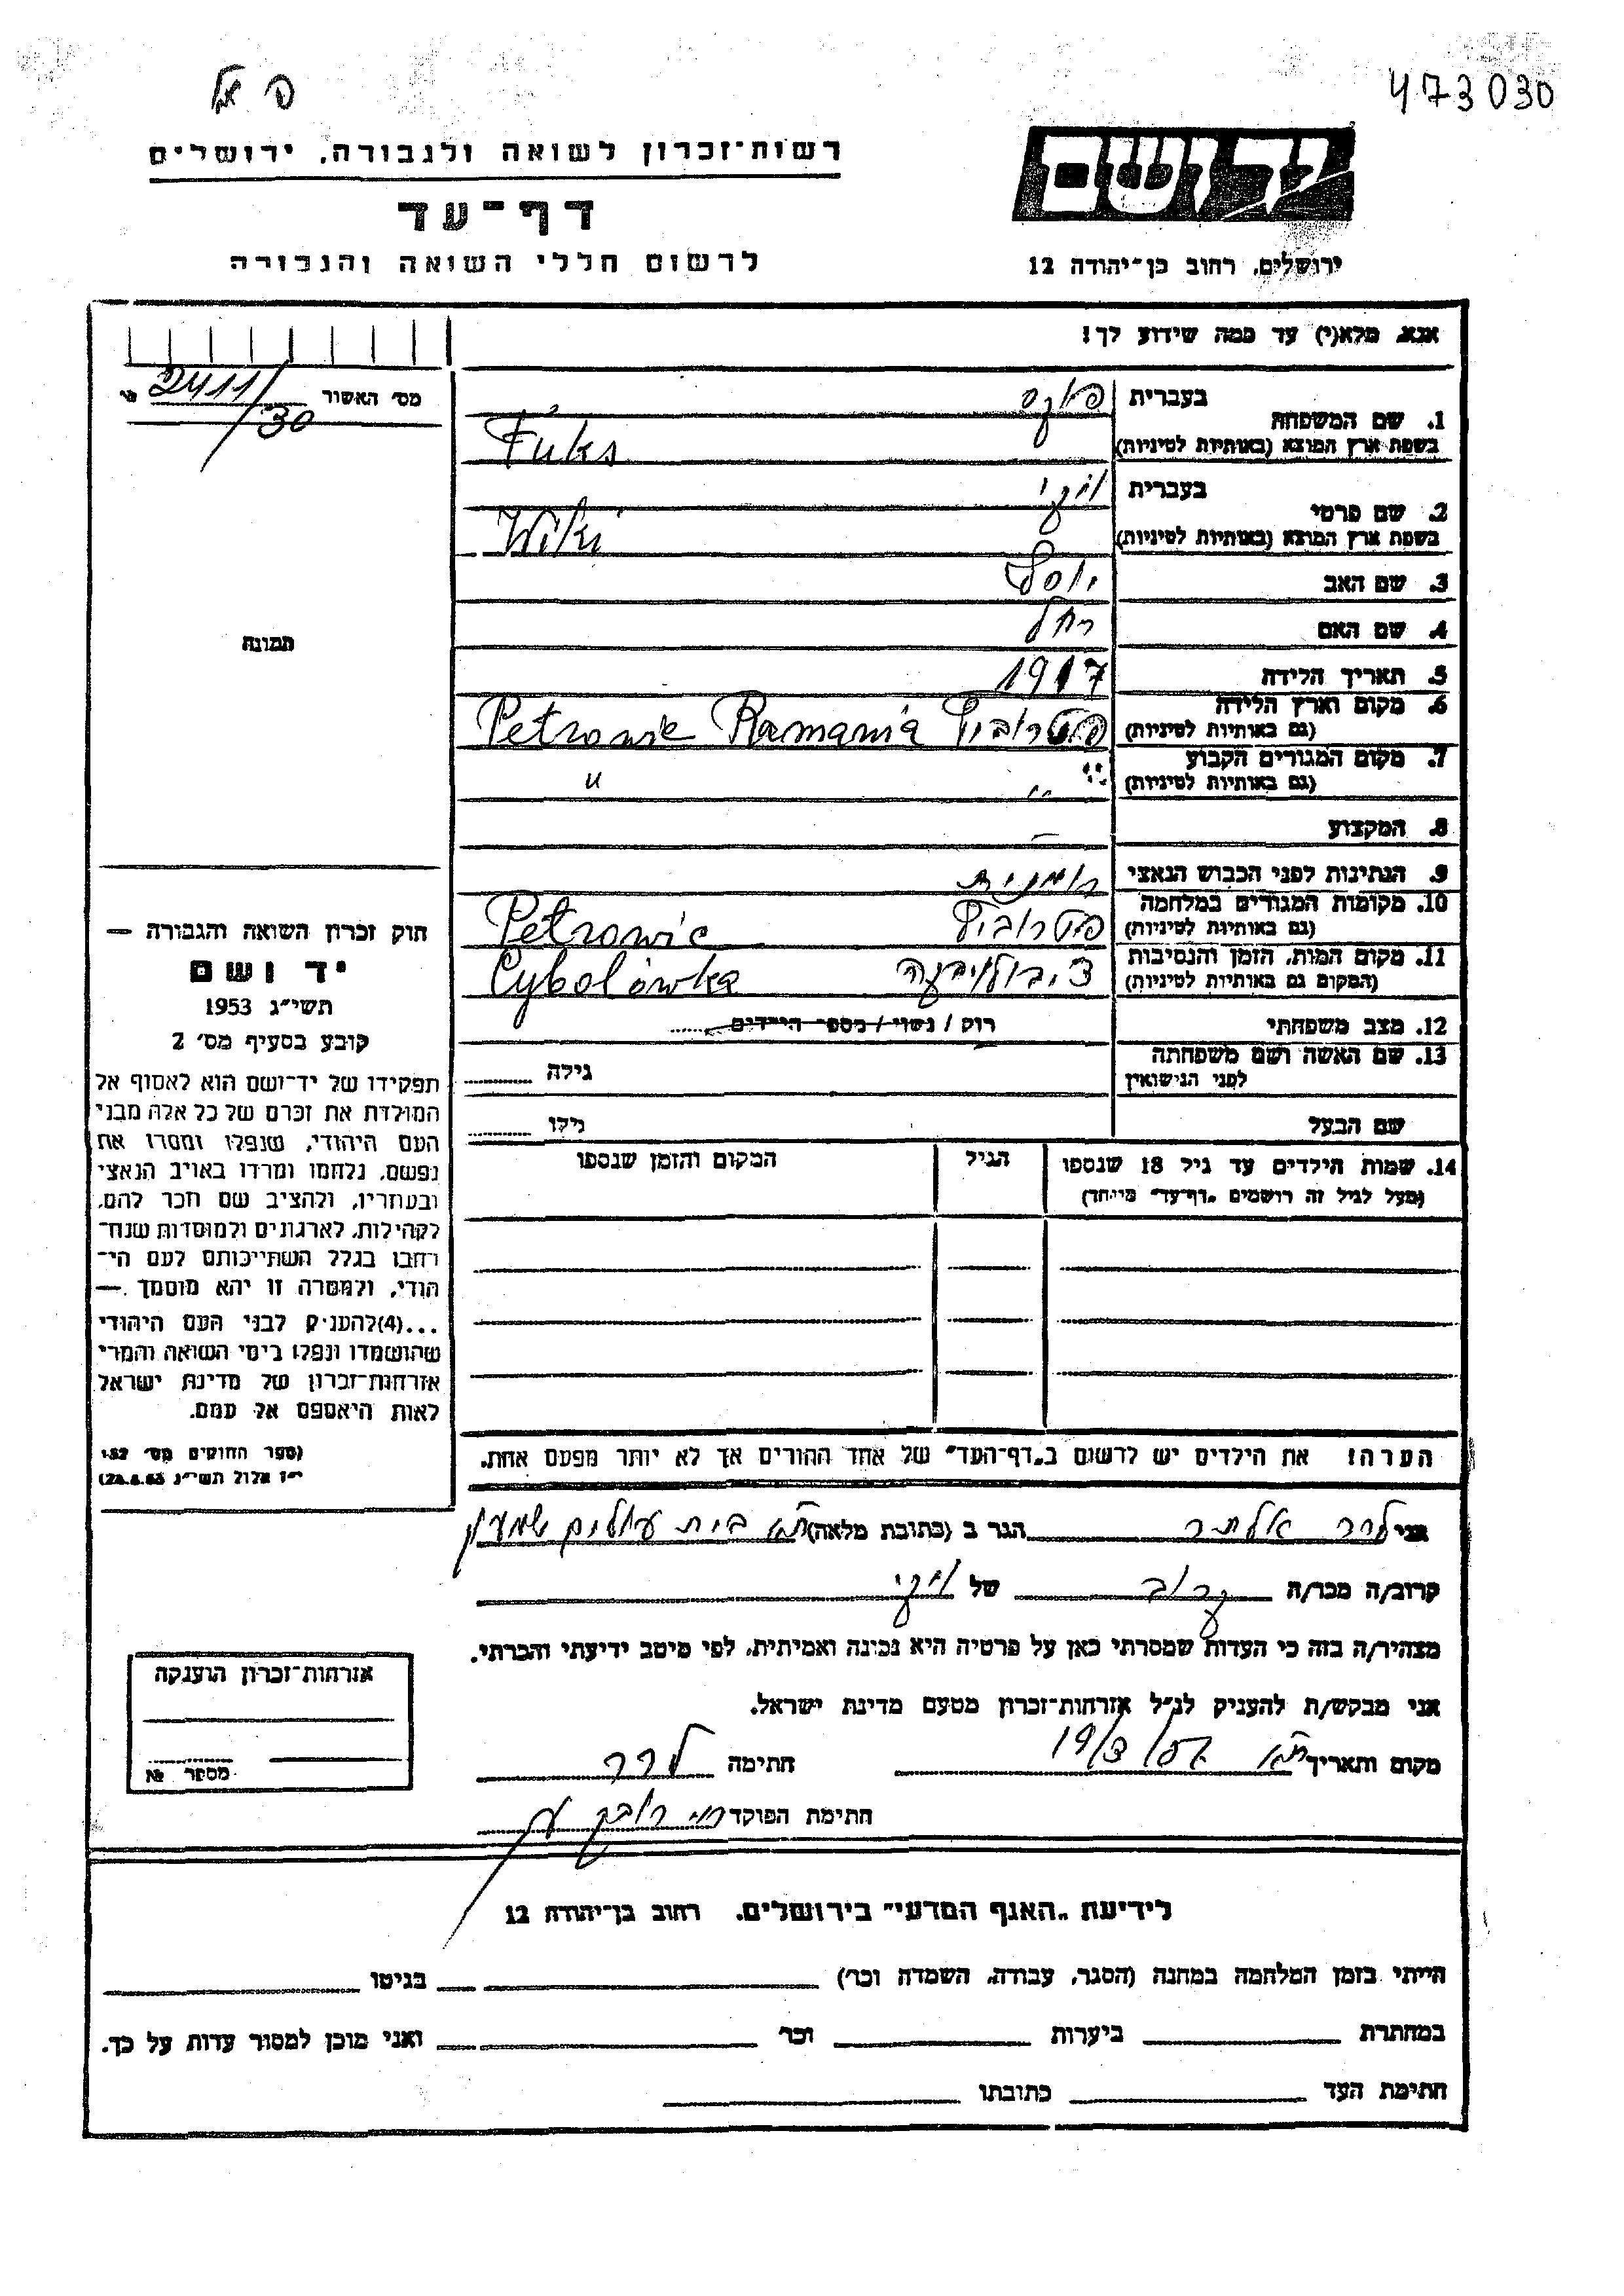 473030
רשות־זכרון לשואה ולגבורה, ירושלים
דף־עד
לרשום חללי השואה והגבורה
יד ושם
ירושלים, רחוב בן־יהודה 12
אנא, מלא(י) עד כמה שידוע לך!
מס׳ האשור
2411/30
תמונה
1. שם המשפחה
בעברית
פוקס
בשפת ארץ המוצא (באותיות לטיניות)
Fuks
2. שם פרטי
בעברית
ויקי
בשפת ארץ המוצא (באותיות לטיניות)
Wiki
3. שם האב יוסף
4. שם האם רחל
5. תאריך הלידה 1917
6. מקום וארץ הלידה
(גם באותיות לטיניות)
פטרוביץ Petrowic Ramania
7. מקום המגורים הקבוע
(גם באותיות לטיניות)
" "
8. המקצוע —
9. הנתינות לפני הכבוש הנאצי רומנית
10. מקומות המגורים במלחמה
(גם באותיות לטיניות)
פטרוביץ Petrowic
11. מקום המות, הזמן והנסיבות
(המקום גם באותיות לטיניות)
ציבולויבקה Cybolówka
12. מצב משפחתי רווק / נשוי / מספר הילדים
13. שם האשה ושם משפחתה
לפני הנישואין
גילה
שם הבעל גילו
14. שמות הילדים עד גיל 18 שנספו
(מעל לגיל זה רושמים „דף־עד״ מייוחד)
הגיל
המקום והזמן שנספו
הערה! את הילדים יש לרשום ב„דף־העד״ של אחד ההורים אך לא יותר מפעם אחת.
חוק זכרון השואה והגבורה —
יד ושם
תשי״ג 1953
קובע בסעיף מס׳ 2
תפקידו של יד־ושם הוא לאסוף אל
המולדת את זכרם של כל אלה מבני
העם היהודי, שנפלו ומסרו את
נפשם, נלחמו ומרדו באויב הנאצי
ובעוזריו, ולהציב שם וזכר להם,
לקהילות, לארגונים ולמוסדות שנח־
רבו בגלל השתייכותם לעם הי־
הודי, ולמטרה זו יהא מוסמך —
...(4) להעניק לבני העם היהודי
שהושמדו ונפלו בימי השואה והמרי
אזרחות־זכרון של מדינת ישראל
לאות היאספם אל עמם.
(ספר החוקים מס׳ 132
י״ז אלול תשי״ג 28.8.53)
אני לרר אלתר הגר ב (כתובת מלאה) ת״א בית עולים שמעון
קרוב/ה מכר/ה קרוב של ויקי
מצהיר/ה בזה כי העדות שמסרתי כאן על פרטיה היא נכונה ואמיתית, לפי מיטב ידיעתי והכרתי.
אני מבקש/ת להעניק לנ״ל אזרחות־זכרון מטעם מדינת ישראל.
מקום ותאריך ת״א 19/3 חתימה לרר
חתימת הפוקד
אזרחות־זכרון הוענקה
מספר №
לידיעת „האגף המדעי״ בירושלים, רחוב בן־יהודה 12
הייתי בזמן המלחמה במחנה (הסגר, עבודה, השמדה וכר׳) בגיטו
במחתרת ביערות וכר׳ ואני מוכן למסור עדות על כך.
חתימת העד כתובתו